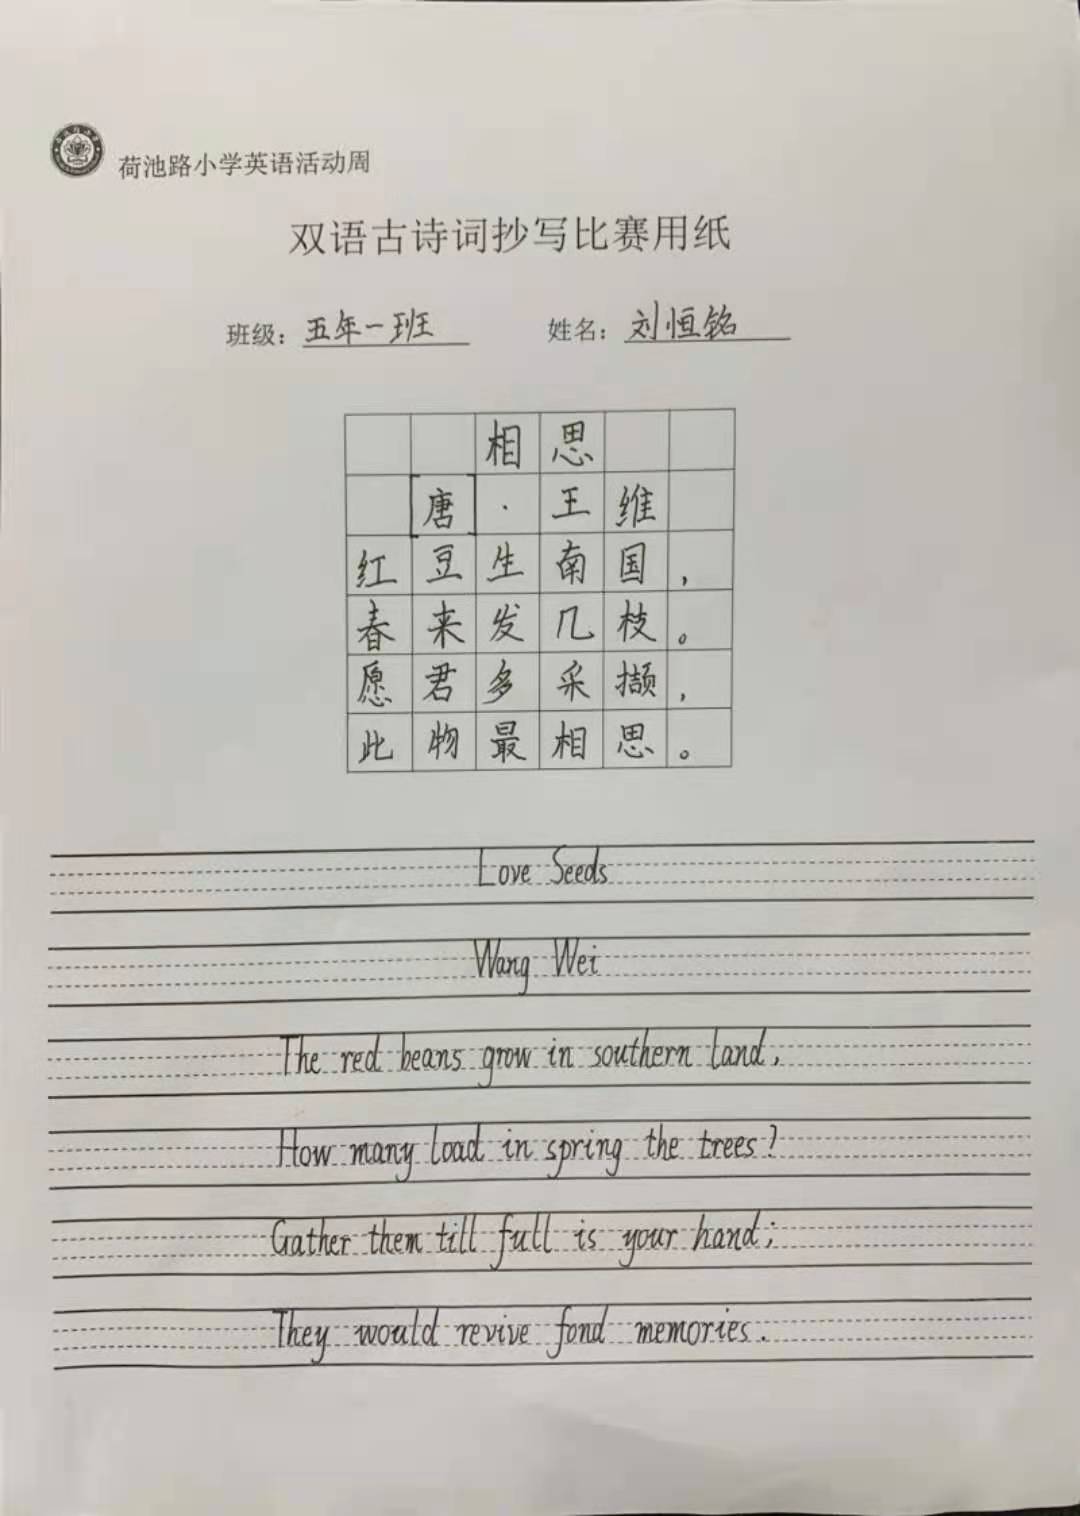 荷池路小学英语活动周
双语古诗词抄写比赛用纸
班级：五年一班 姓名：刘恒铭
相思
[唐]·王维
红豆生南国，
春来发几枝。
愿君多采撷，
此物最相思。
Love Seeds
Wang Wei
The red beans grow in southern land,
How many load in spring the trees?
Gather them till full is your hand;
They would revive fond memories.